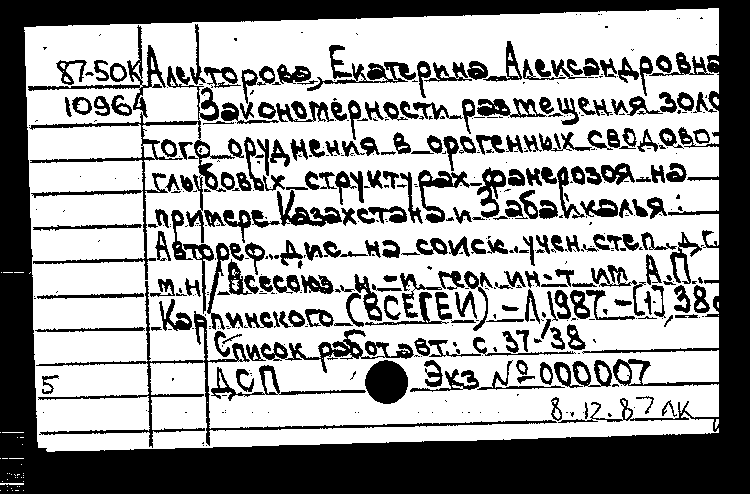 87-50К Алекторова, Екатерина Александровна
10964 Закономерности размещения золо
того оруднения в орогенных сводово-
глыбовых структурах фанерозоя на
примере Казахстана и Забайкалья:
Автореф. дис. на соиск. учен. степ. д.г.
м.н / Всесоюз. н.-и. геол. ин-т им А.П.
Карпинского (ВСЕГЕИ). - Л. 1987. - [1], 38с
Список работ авт.: с. 37-38.
5 ДСП Экз № 000007
8.12.87 ЛК